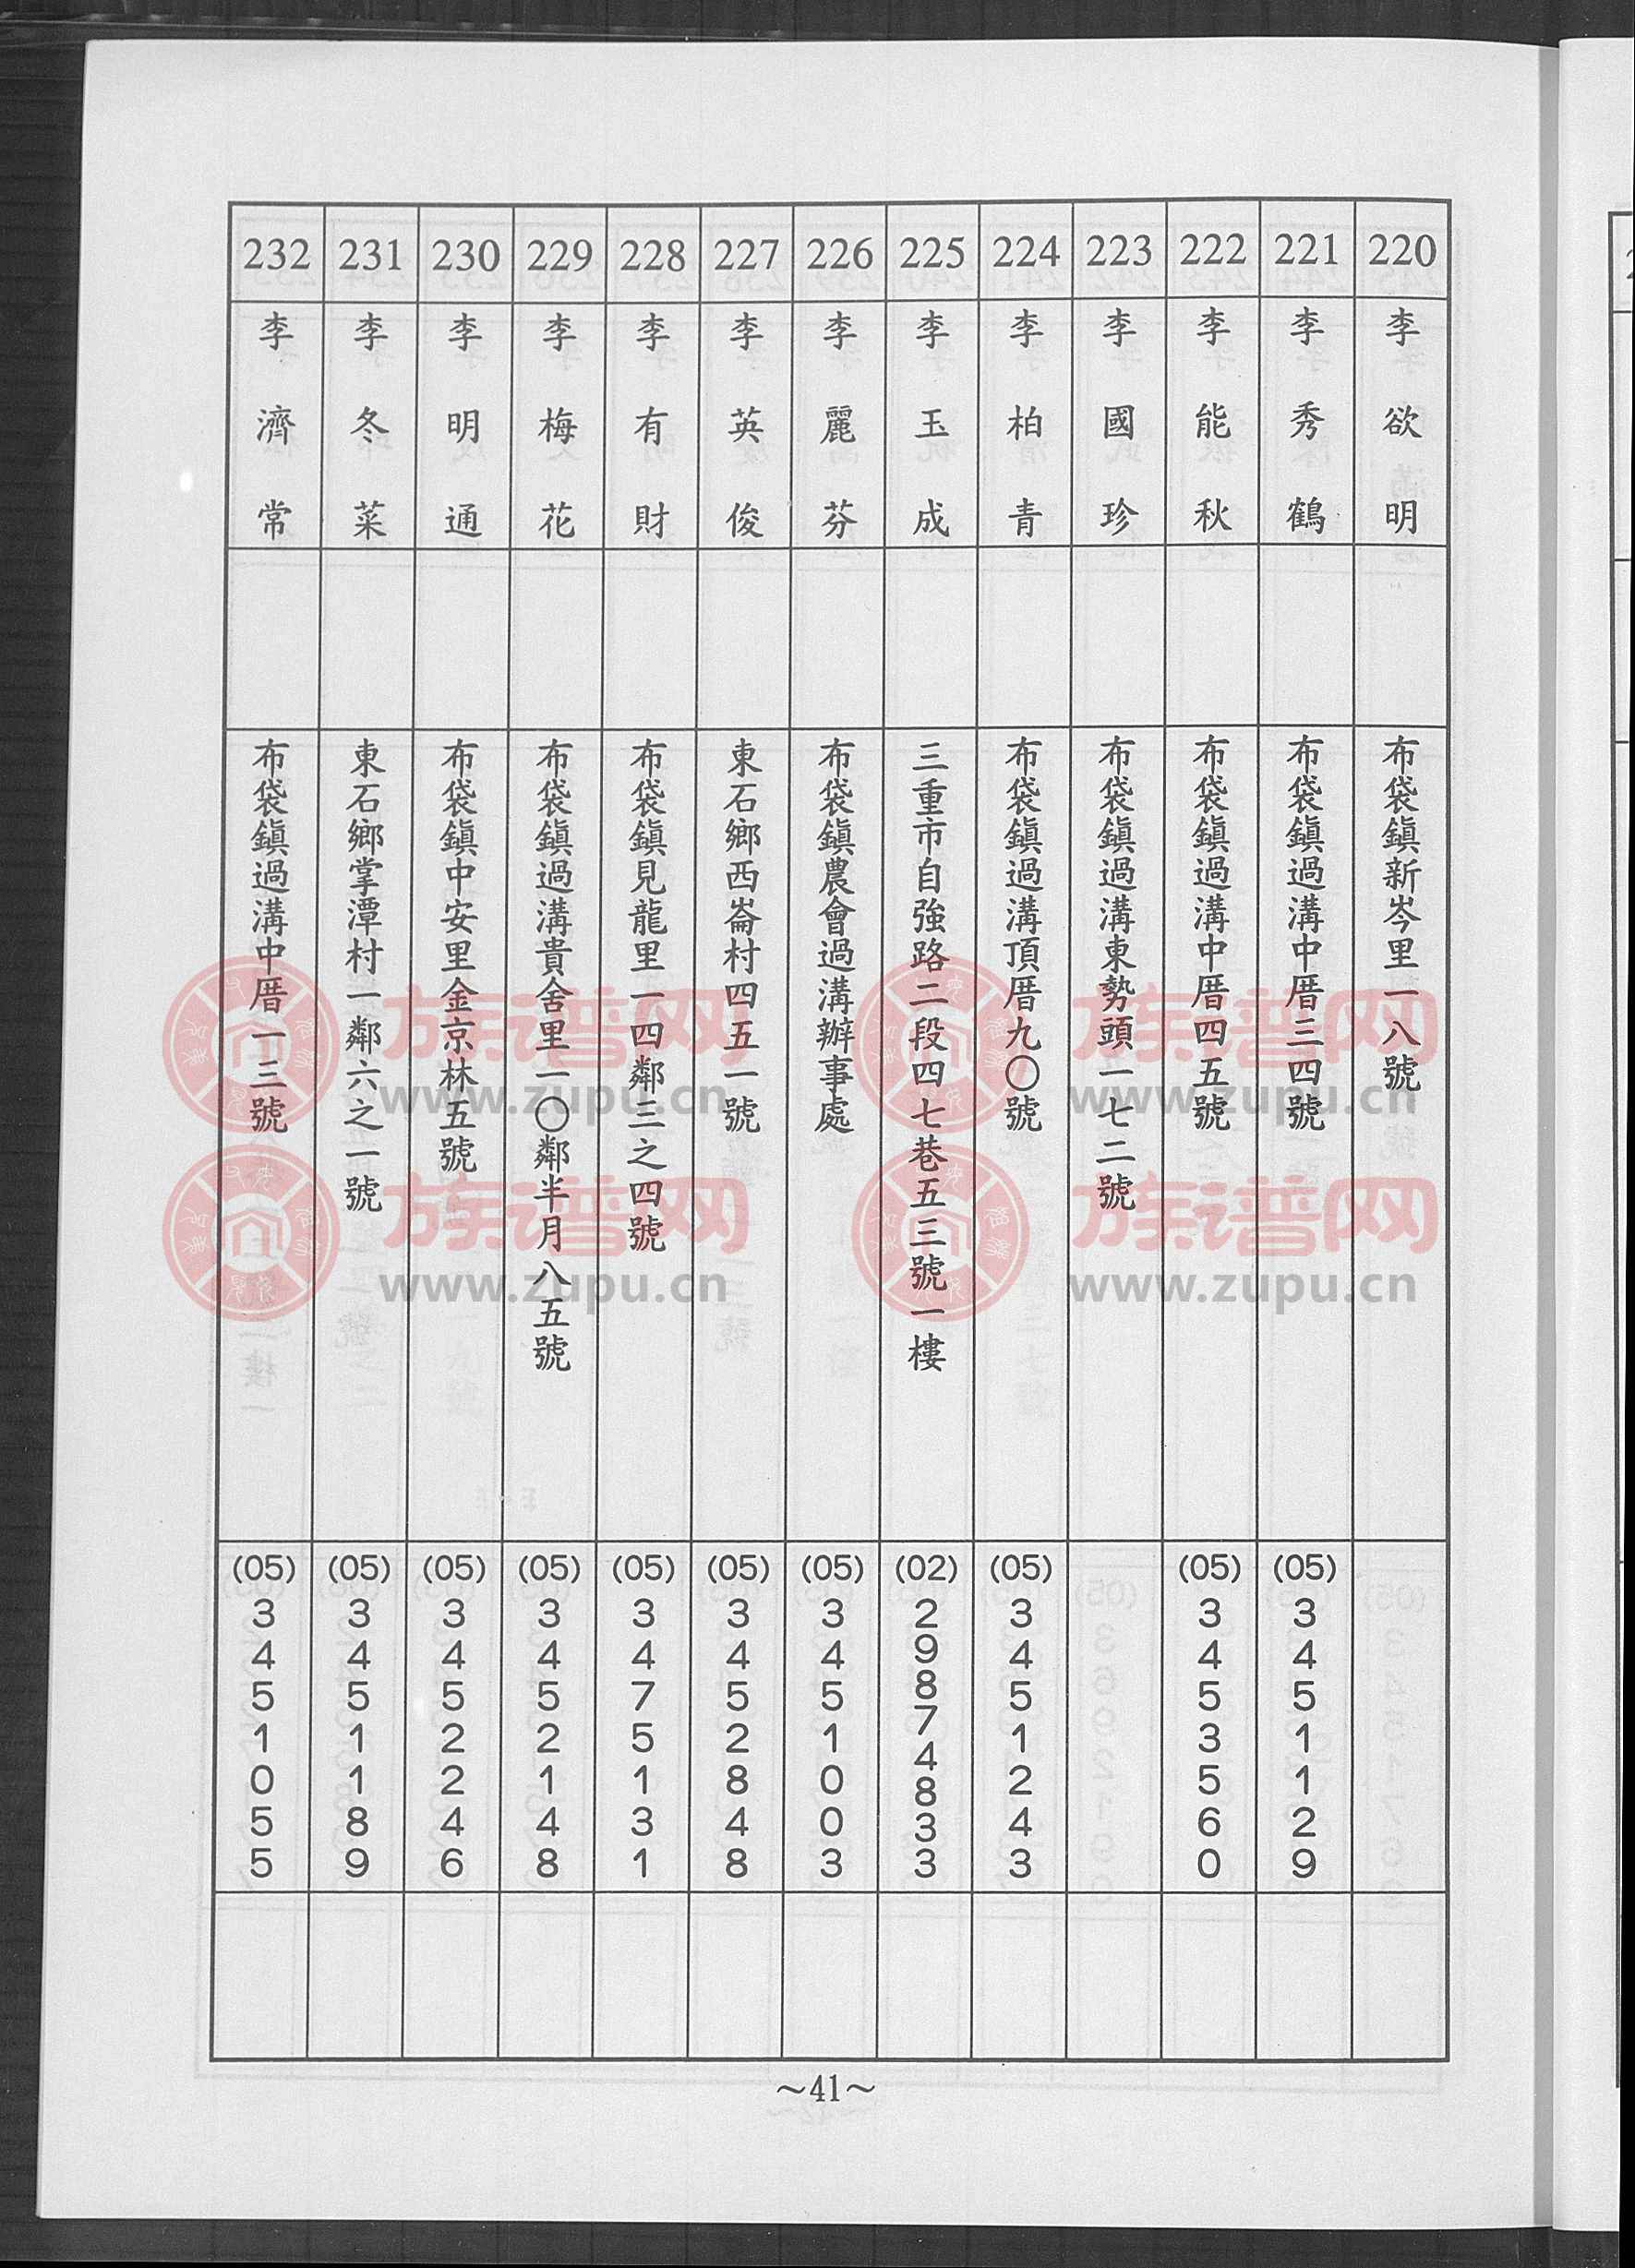 220
李欲明
布袋鎮新岑里一八號
221
李秀鶴
布袋鎮過溝中厝三四號
(05)3451129
222
李能秋
布袋鎮過溝中厝四五號
(05)3453560
223
李國珍
布袋鎮過溝東勢頭一七二號
224
李柏青
布袋鎮過溝頂厝九〇號
(05)3451243
225
李玉成
三重市自強路二段四七巷五三號一樓
(02)29874833
226
李麗芬
布袋鎮農會過溝辦事處
(05)3451003
227
李英俊
東石鄉西崙村四五一號
(05)3452848
228
李有財
布袋鎮見龍里一四鄰三之四號
(05)3475131
229
李梅花
布袋鎮過溝貴舍里一〇鄰半月八五號
(05)3452148
230
李明通
布袋鎮中安里金京林五號
(05)3452246
231
李冬菜
東石鄉掌潭村一鄰六之一號
(05)3451189
232
李濟常
布袋鎮過溝中厝一三號
(05)3451055
～41～
族谱网
www.zupu.cn
族谱网
www.zupu.cn
族谱网
www.zupu.cn
族谱网
www.zupu.cn